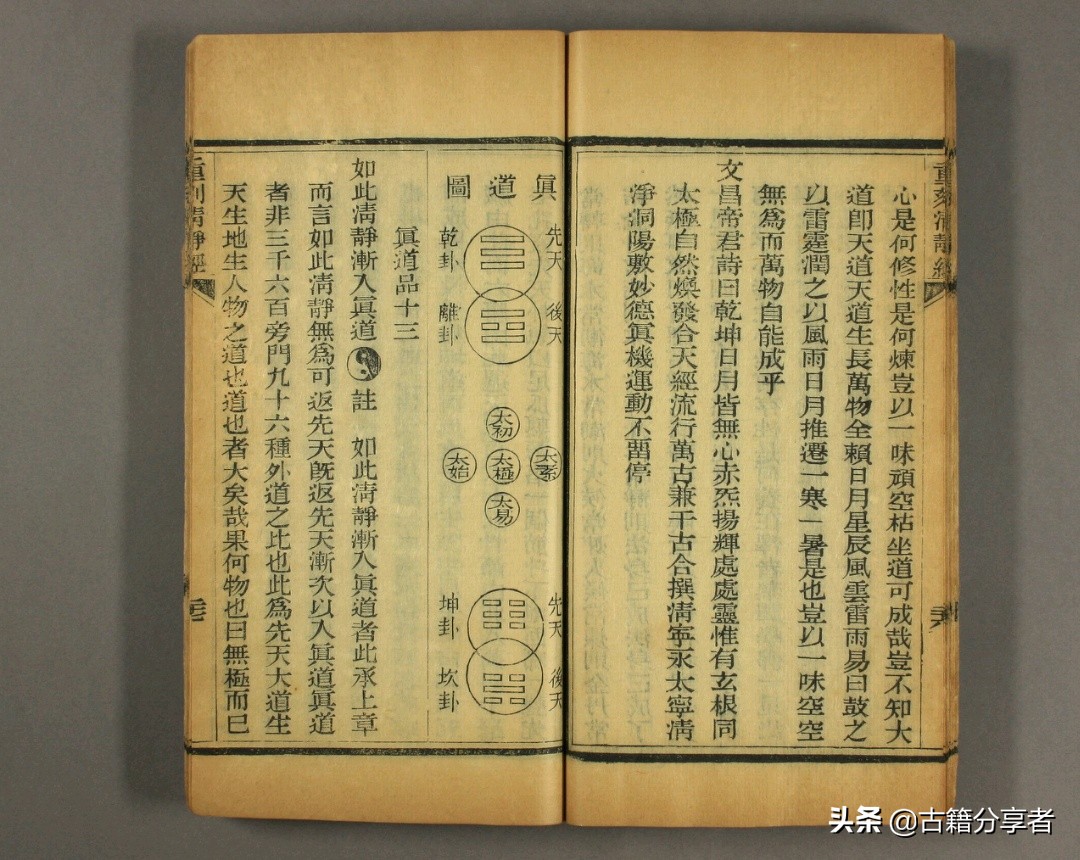 重刻清靜經
心是何修性是何煉豈以一味頑空枯坐道可成哉豈不知大
道卽天道天道生長萬物全賴日月星辰風雲雷雨易曰鼓之
以雷霆潤之以風雨日月推遷一寒一暑是也豈以一味空空
無爲而萬物自能成乎
文昌帝君詩曰乾坤日月皆無心赤炁揚輝處處靈惟有玄根同
太極自然煥發合天經流行萬古兼千古合撰淸寧永太寧淸
淨洞陽敷妙德眞機運動不畱停
眞道圖
先天 後天
乾卦 離卦
太初
太素 太極 太始
太易
先天 後天
坤卦 坎卦
眞道品十三
如此淸靜漸入眞道 註 如此淸靜漸入眞道者此承上章
而言如此淸靜無爲可返先天旣返先天漸次以入眞道眞道
者非三千六百旁門九十六種外道之比也此爲先天大道生
天生地生人物之道也道也者大矣哉果何物也曰無極而已
重刻淸靜經
頭条 @古籍分享者